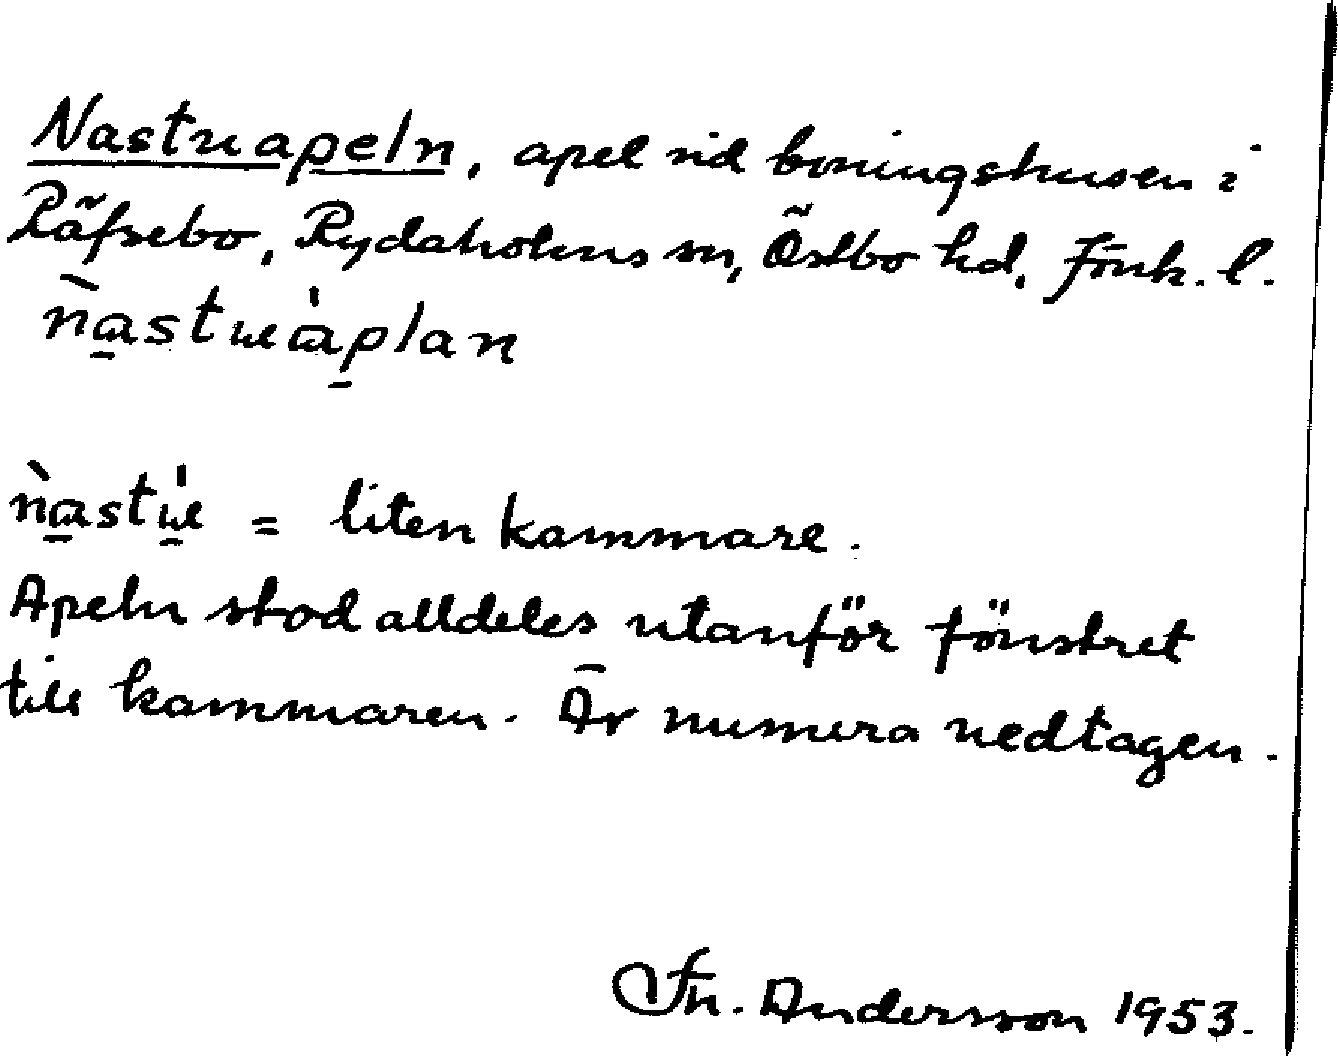 Nastuapeln, apel vid boningshusen i
Räfsebo, Rydaholms sn, Östbo hd, Jönk. l.
nastuaplan
nastu = liten kammare.
Apeln stod alldeles utanför fönstret
till kammaren. Är numera nedtagen.
Th. Andersson 1953.